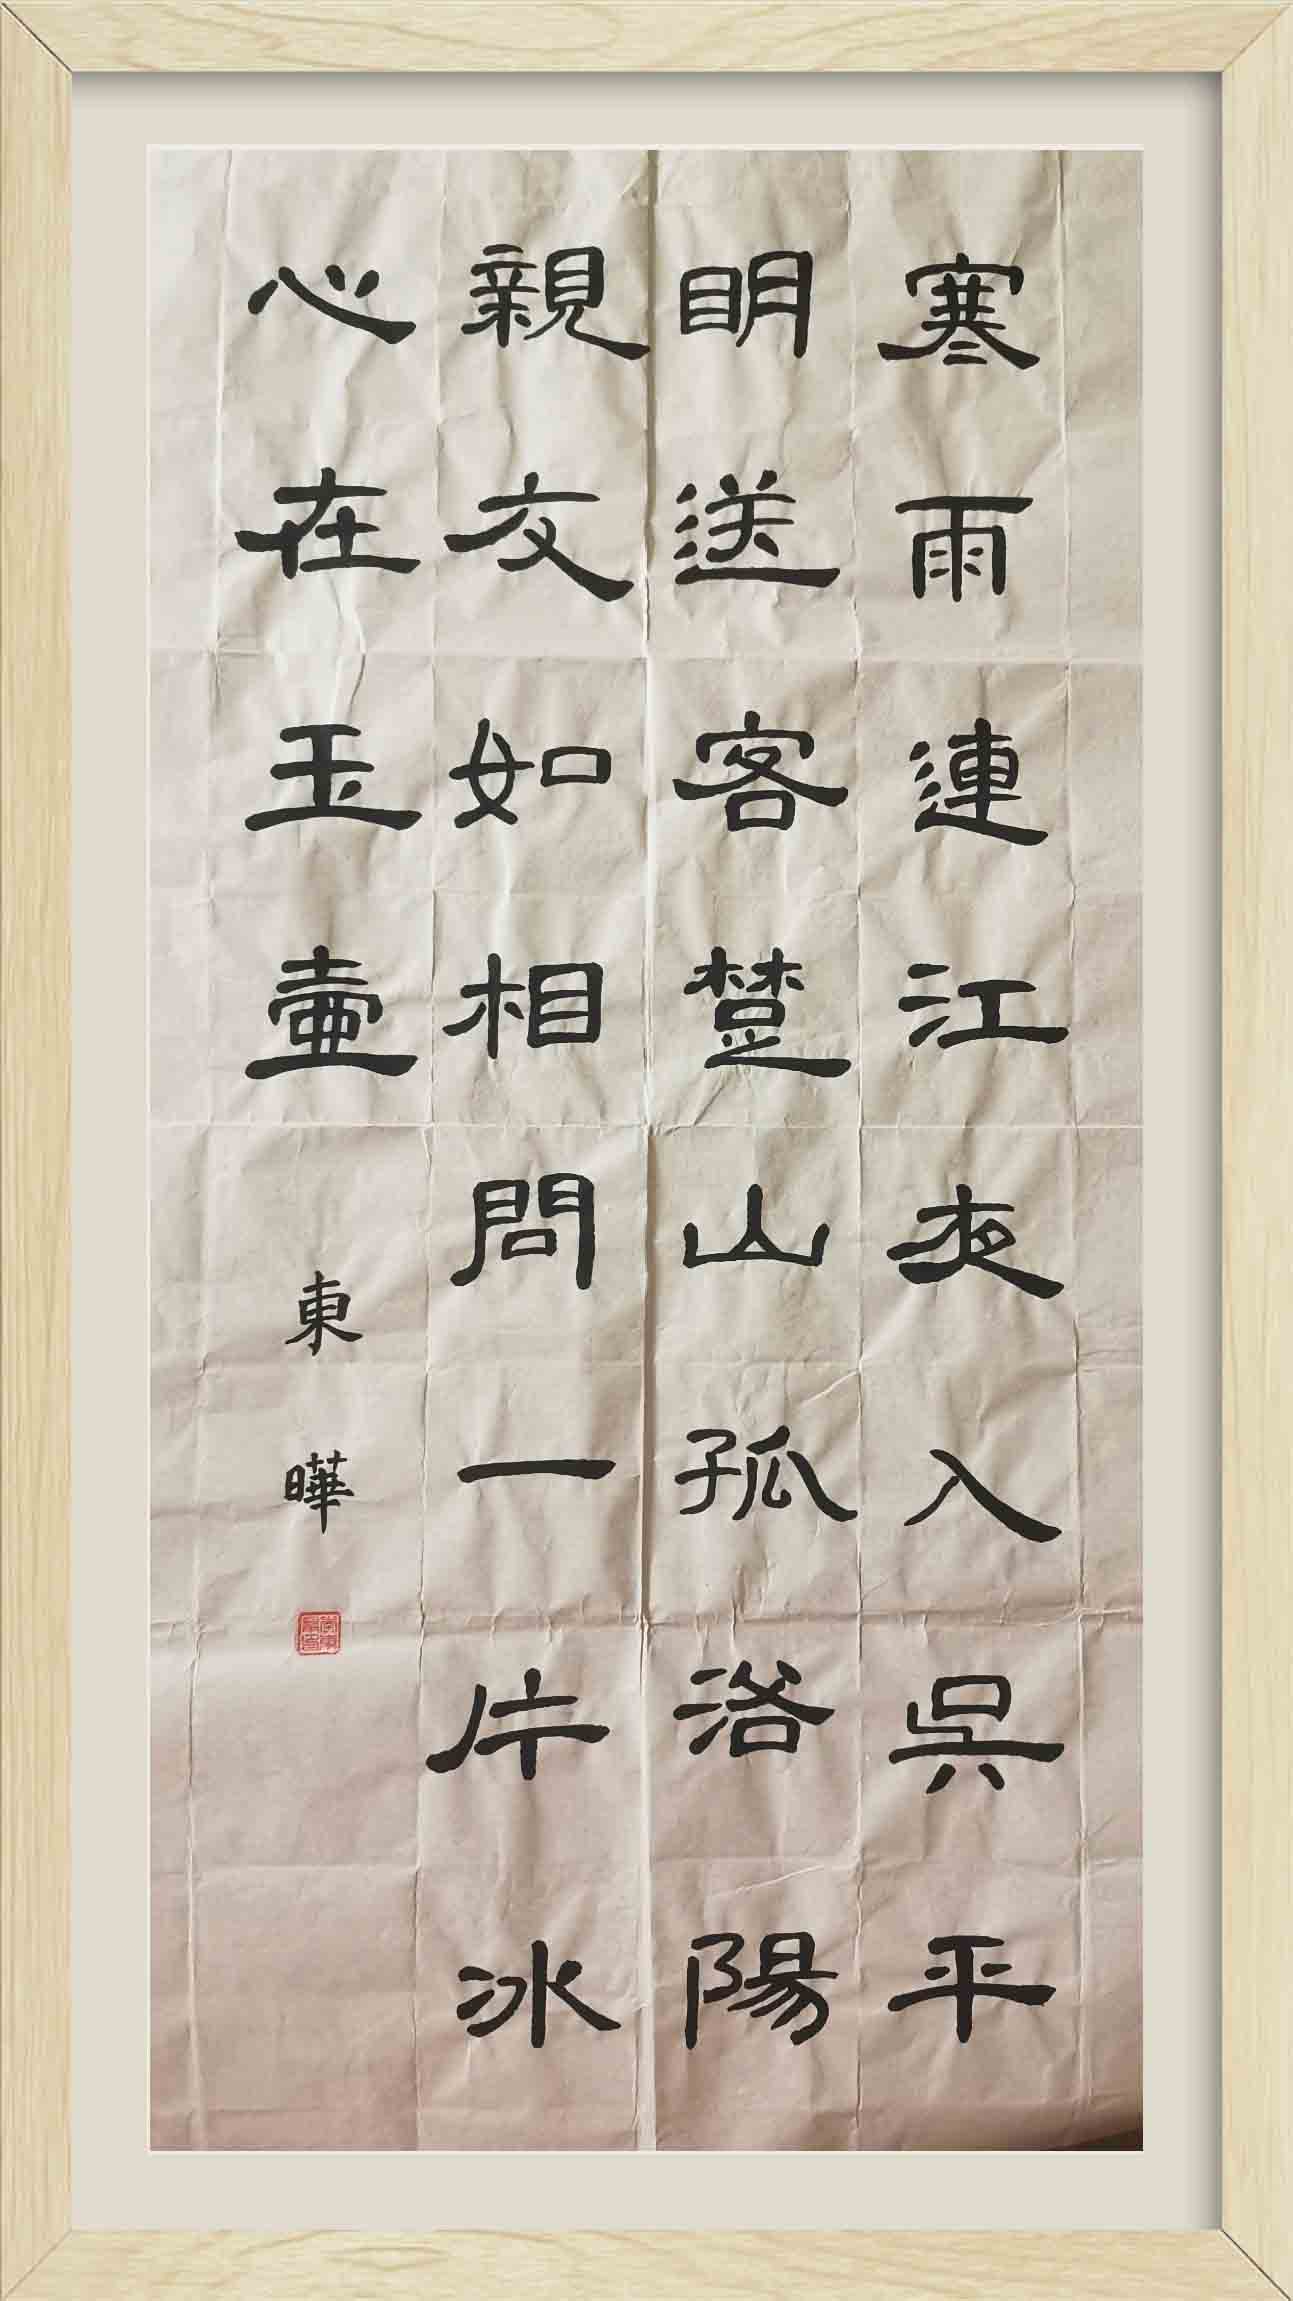 寒雨連江夜入吳平
明送客楚山孤洛陽
親友如相問一片冰
心在玉壷
東曄